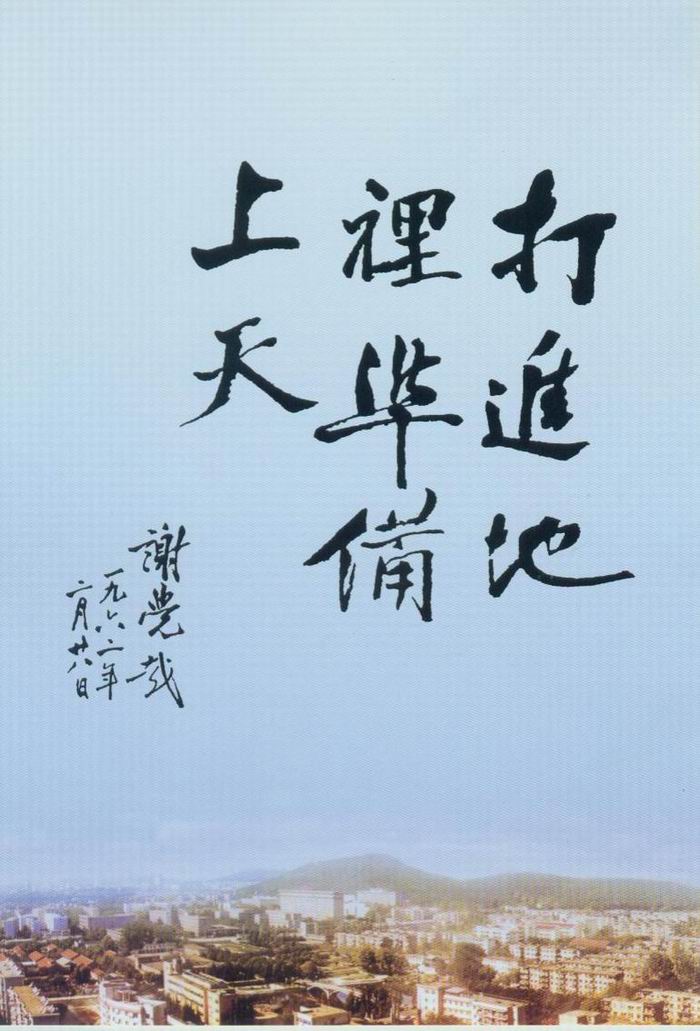 打進地
裡準備
上天
謝覺哉
一九六二年
二月廿八日